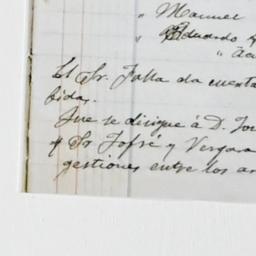 " Manuel
" Eduardo
"
El Sr. Jalla da cuenta
bidas.
Que se dirigue á D.
y Sr. Jofré y Vergara
gestiones entre los